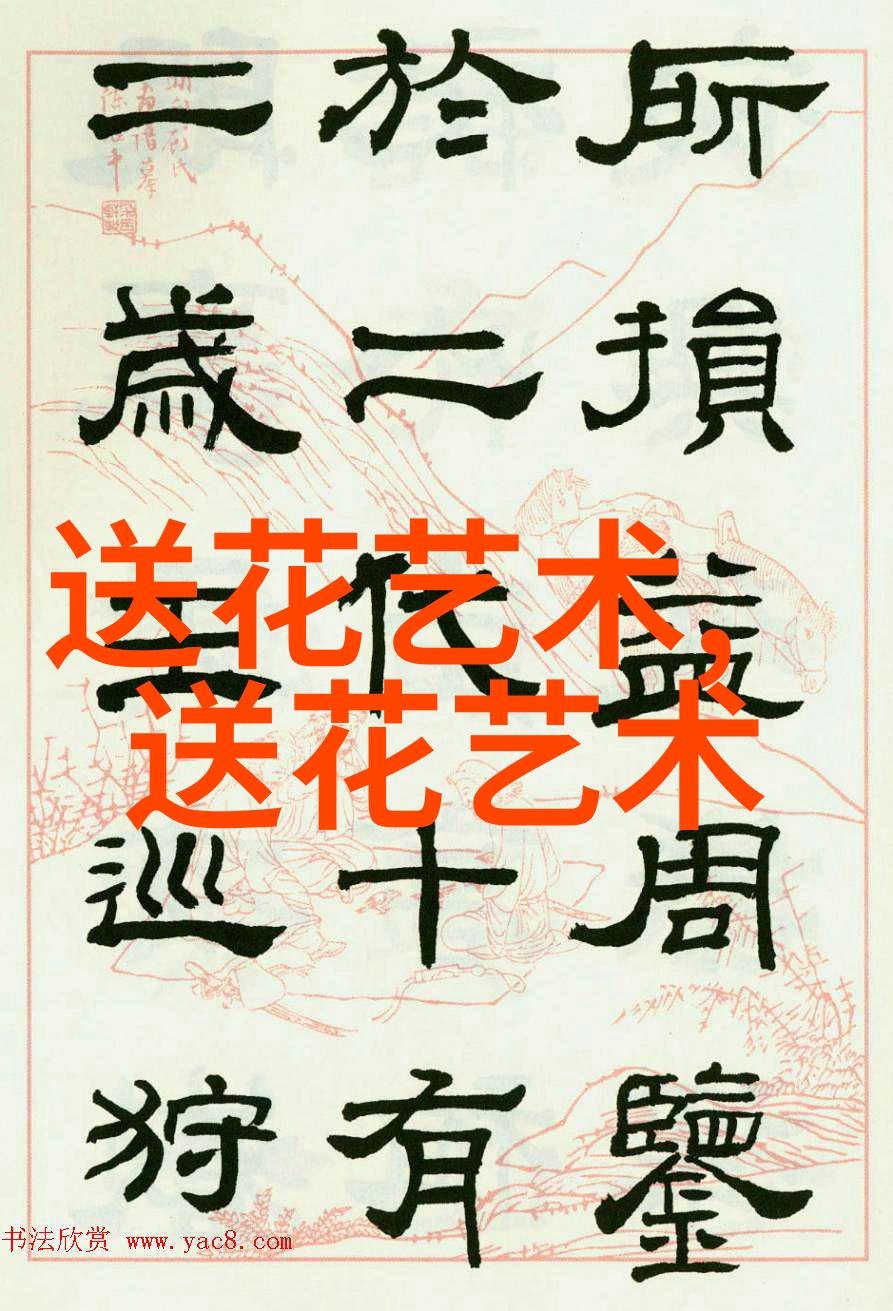 所損益周鑒
於二代十有
二歲王巡狩
送花艺术,
送花艺术
书法欣赏 www.yac8.com